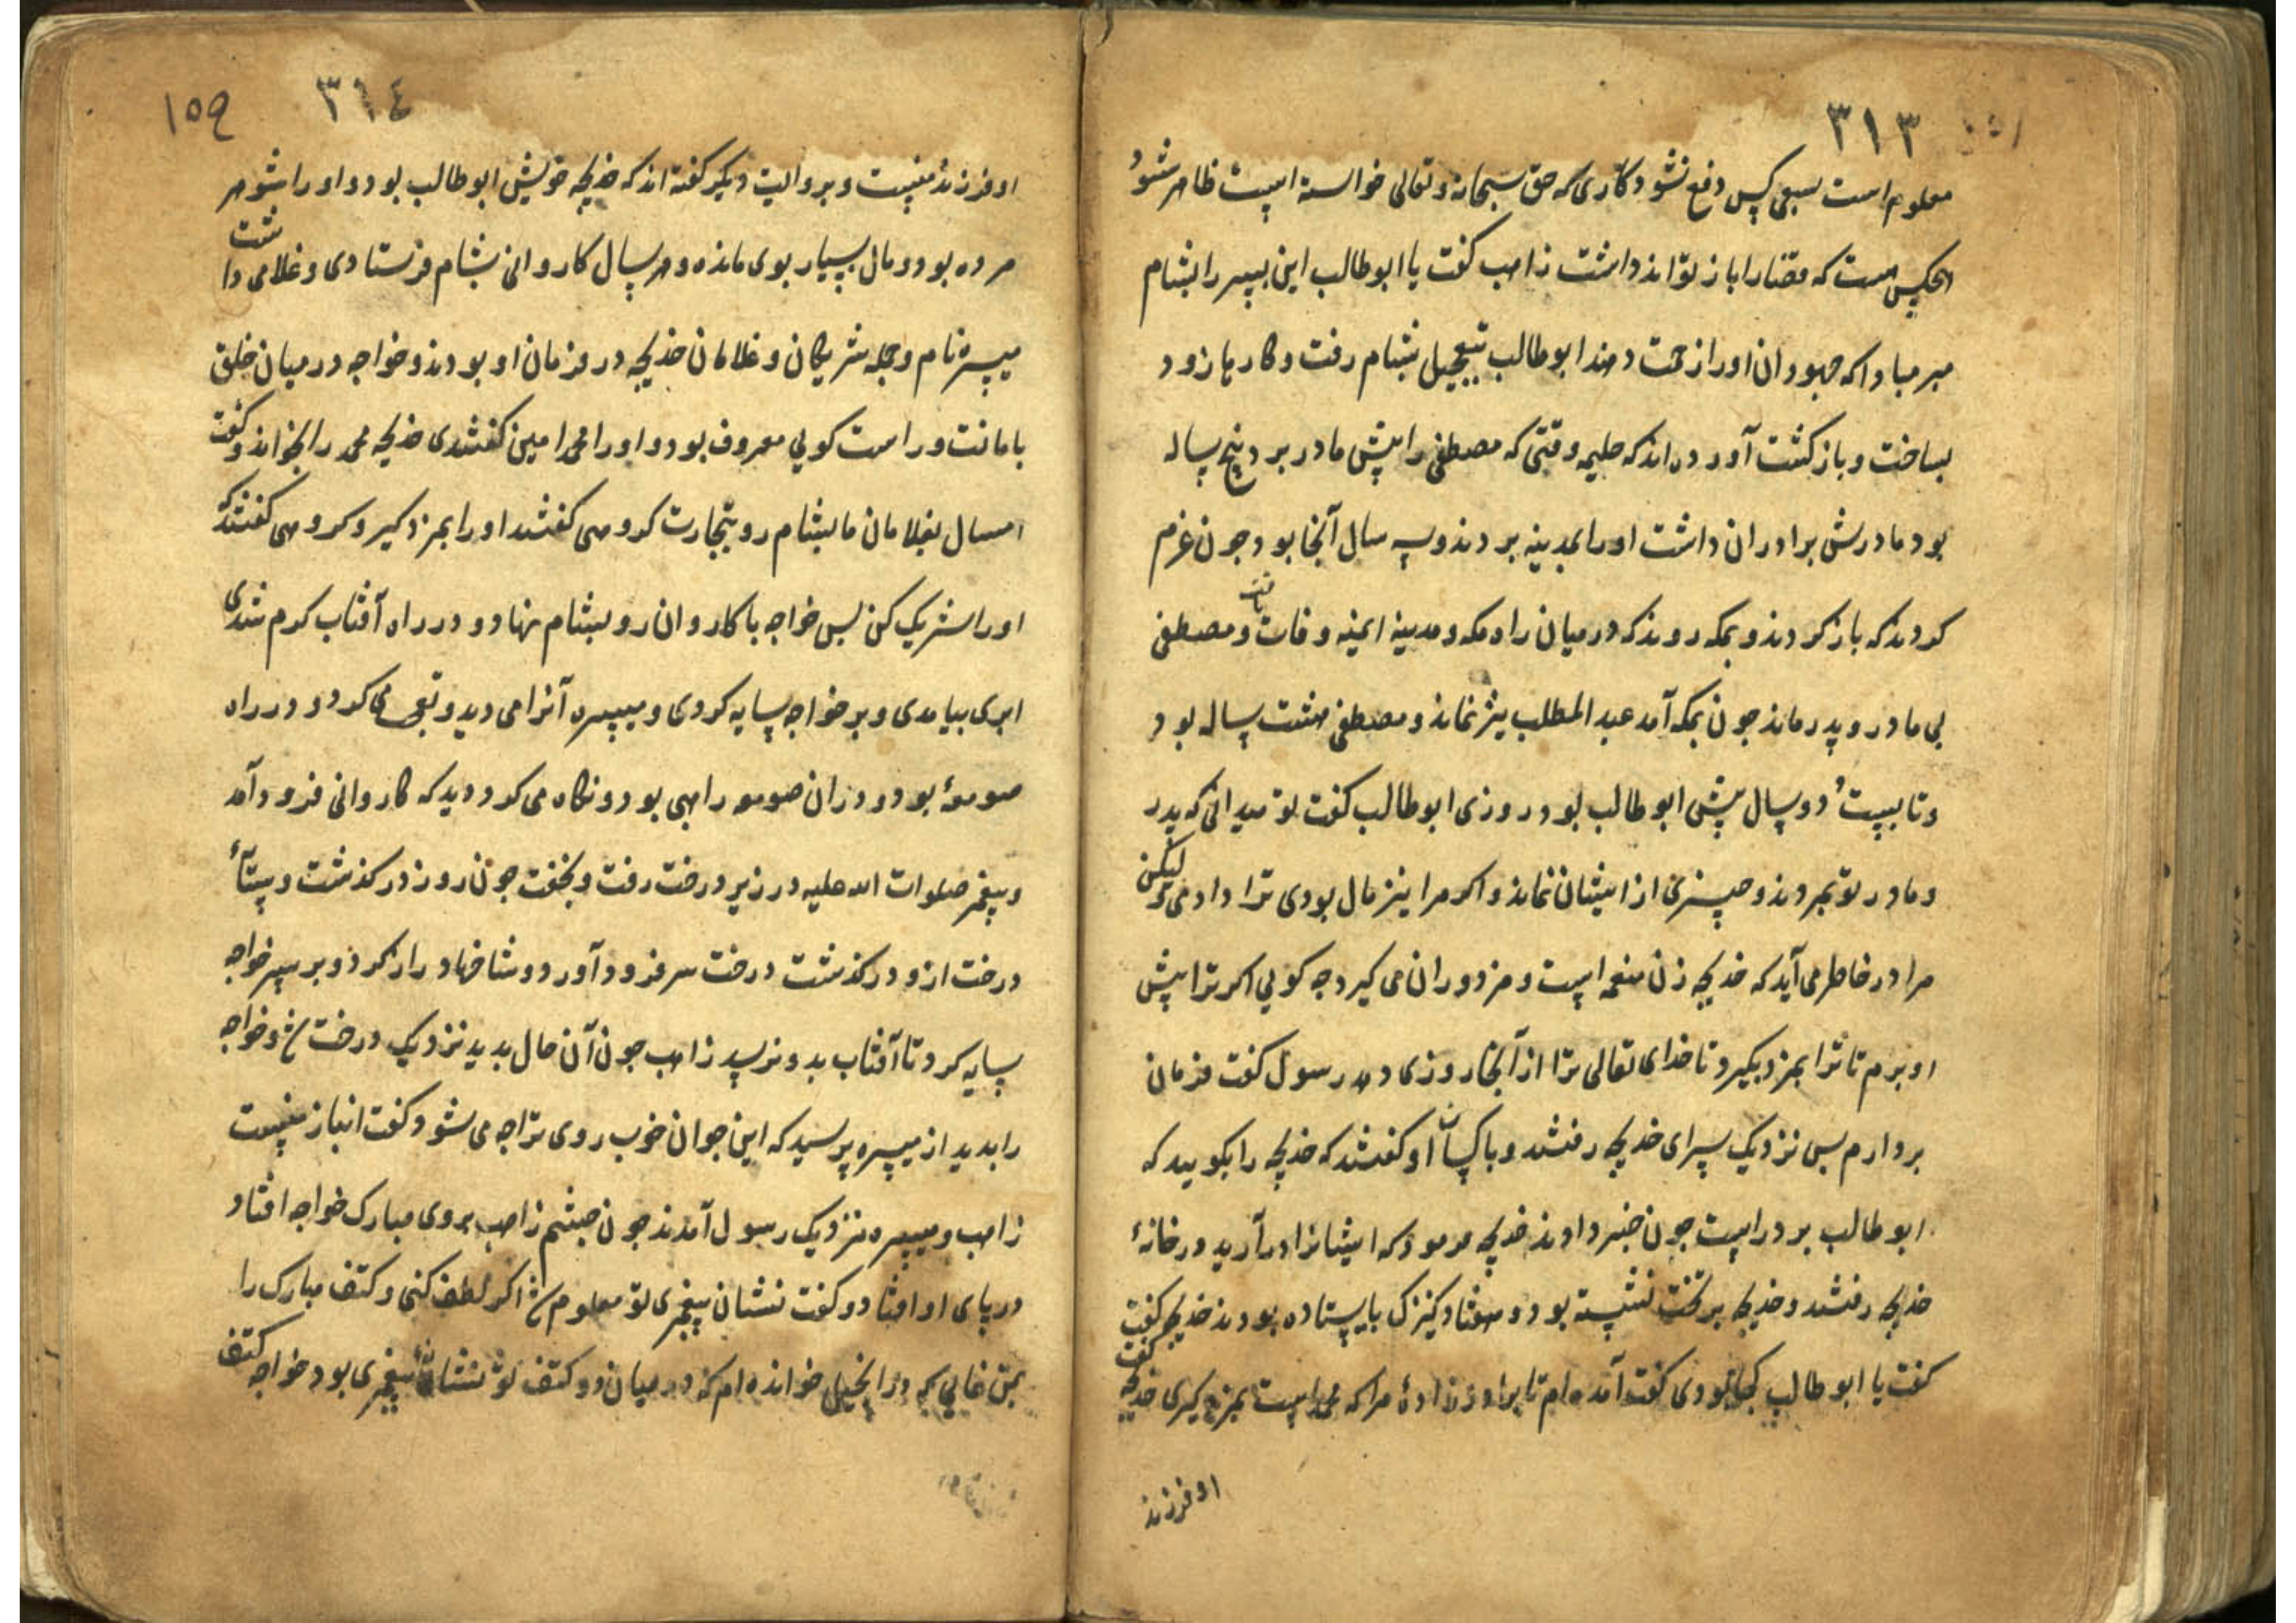 ٣١٣
معلوم است بسعی کس دفع نشود کاری که حق سبحانه وتعالی خواسته است ظاهر شود
کس است که قضا را باز تواند داشت زاهب کفت یا ابوطالب این پسر را بشام
مبر مبادا که جهودان او را زحمت دهند ابوطالب بتعجیل بشام رفت و کارها زود
بساخت و بازکشت آورده اند که حلیمه وقتی که مصطفی را پیش مادر برد پنج ساله
بود مادرش برادران داشت او را بمدینه بردند و سه سال آنجا بود جون عزم
کردند که باز کردند و بمکه روند که در میان راه مکه و مدینه ایمنه وفات یافت و مصطفی
بی مادر و پدر ماند جون بمکه آمد عبد المطلب نیز نماند و مصطفی هشت ساله بود
و تا بیست و دو سال پیش ابوطالب بود روزی ابوطالب کفت تو میدانی که پدر
و مادر تو بمردند و چیزی از ایشان نماند و اکر مرا نیز مال بودی ترا دادمی لیکن
مرا در خاطر می آید که خدیجه زن منعمه است و مزدوران می کیرد چه کویی اکر ترا پیش
او برم تا ترا بمزد بکیرد تا خدای تعالی ترا از آنجا روزی دهد رسول کفت فرمان
بردارم بس نزدیک سرای خدیجه رفتند و با کسان او کفتند که خدیجه را بکویید که
ابوطالب بر در است جون خبر دادند خدیجه فرمود که ایشانرا در آرید در خانهٔ
خدیجه رفتند و خدیجه بر تخت نشسته بود و هفتاد کنیزک بایستاده بودند خدیجه کفت
کفت یا ابوطالب کجا بودی کفت آمده ام تا برادرزادهٔ مرا که محمد است بمزد کیری خدیجه کفت
او فرزند
١٥٩ ٣١٤
او فرزند منست و بروایت دیکر کفته اند که خدیجه خویش ابوطالب بود و او را شوهر
مرده بود و مال بسیار بوی مانده و هر سال کاروانی بشام فرستادی و غلامی داشت
میسره نام و جمله شریکان و غلامان خدیجه در فرمان او بودند و خواجه در میان خلق
بامانت و راست کویی معروف بود و او را محمد امین کفتندی خدیجه محمد را بخواند و کفت
امسال بغلامان ما بشام رو بتجارت کروهی کفتند او را بمزد کیر و کروهی کفتند که
او را شریک کن بس خواجه با کاروان رو بشام نهاد و در راه آفتاب کرم شدی
ابری بیامدی و بر خواجه سایه کردی و میسره آنرا می دید و تعجب می کرد و در راه
صومعهٔ بود و در آن صومعه راهبی بود و نکاه می کرد دید که کاروانی فرود آمد
و پیغمبر صلوات الله علیه در زیر درخت رفت و بخفت جون روز در کذشت و سایهٔ
درخت از و در کذشت درخت سر فرود آورد و شاخها دراز کرد و بر سر خواجه
سایه کرد تا آفتاب بدو نرسد زاهب جون آن حال بدید نزدیک درخت و خواجه
را بدید از میسره پرسید که این جوان خوب روی ترا چه می شود کفت انباز منست
زاهب و میسره نزدیک رسول آمدند جون جشم زاهب بروی مبارک خواجه افتاد
در پای او افتاد و کفت نشان پیغمبری تو معلوم اکر لطف کنی و کتف مبارک را
بمن نمایی که در انجیل خوانده ام که در میان دو کتف تو نشانهٔ پیغمبری بود خواجه کتف